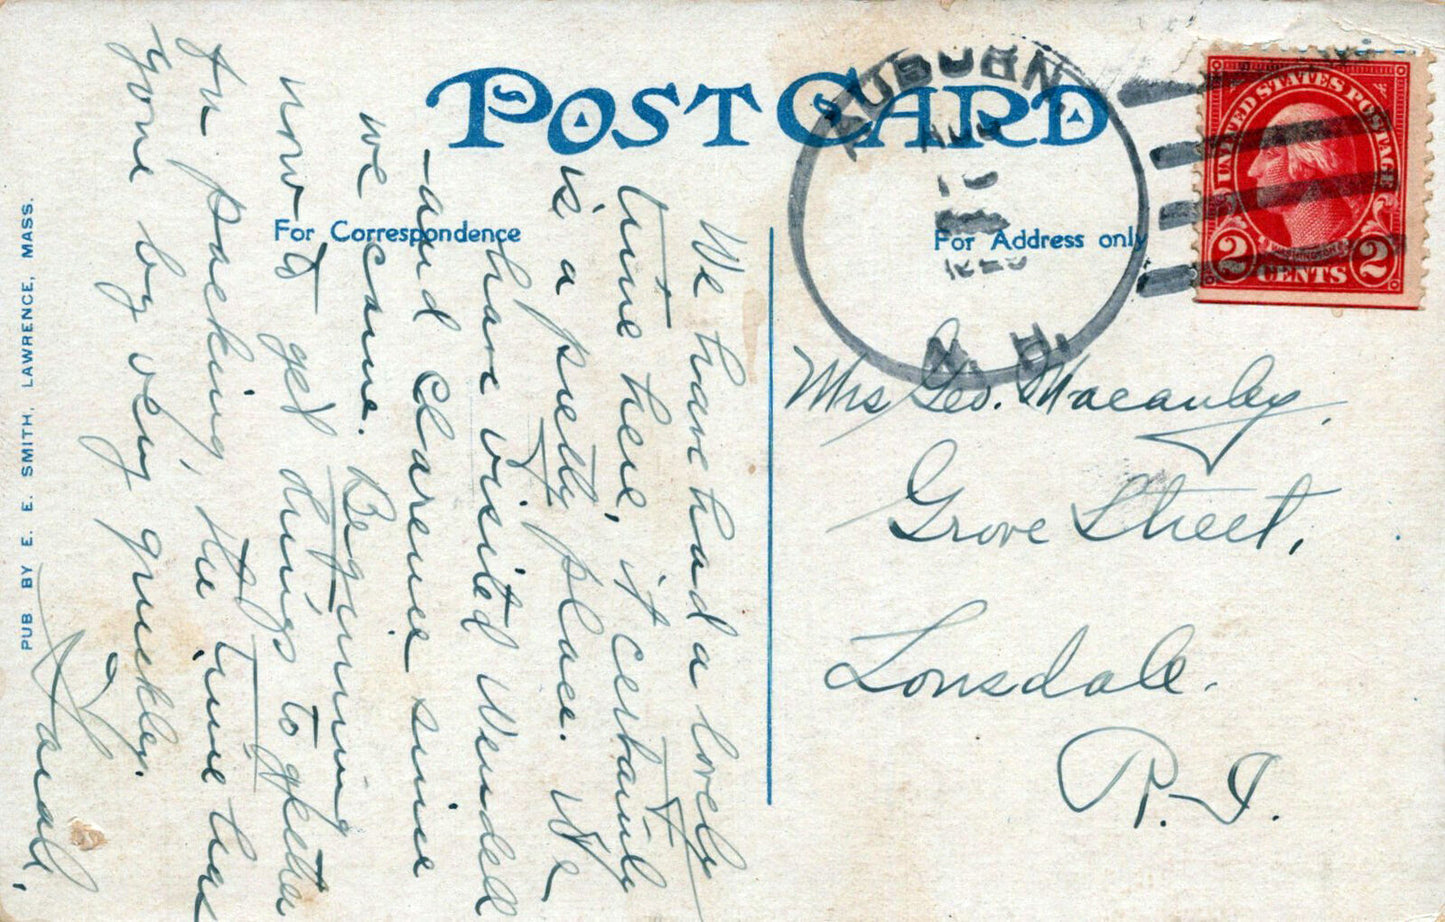 POST CARD
For Correspondence
For Address only
AUBURN,
AUG
10
N. H.
UNITED STATES POSTAGE
2 CENTS 2
Mrs Geo. Macauley,
Grove Street,
Lonsdale.
R. I.
We have had a lovely
time here, it certainly
is a pretty place. We
have visited Wendell
and Clarence since
we came. Beginning
now to get things together
for packing, the time has
gone by very quickly.
Sarah.
PUB BY E. E. SMITH, LAWRENCE, MASS.